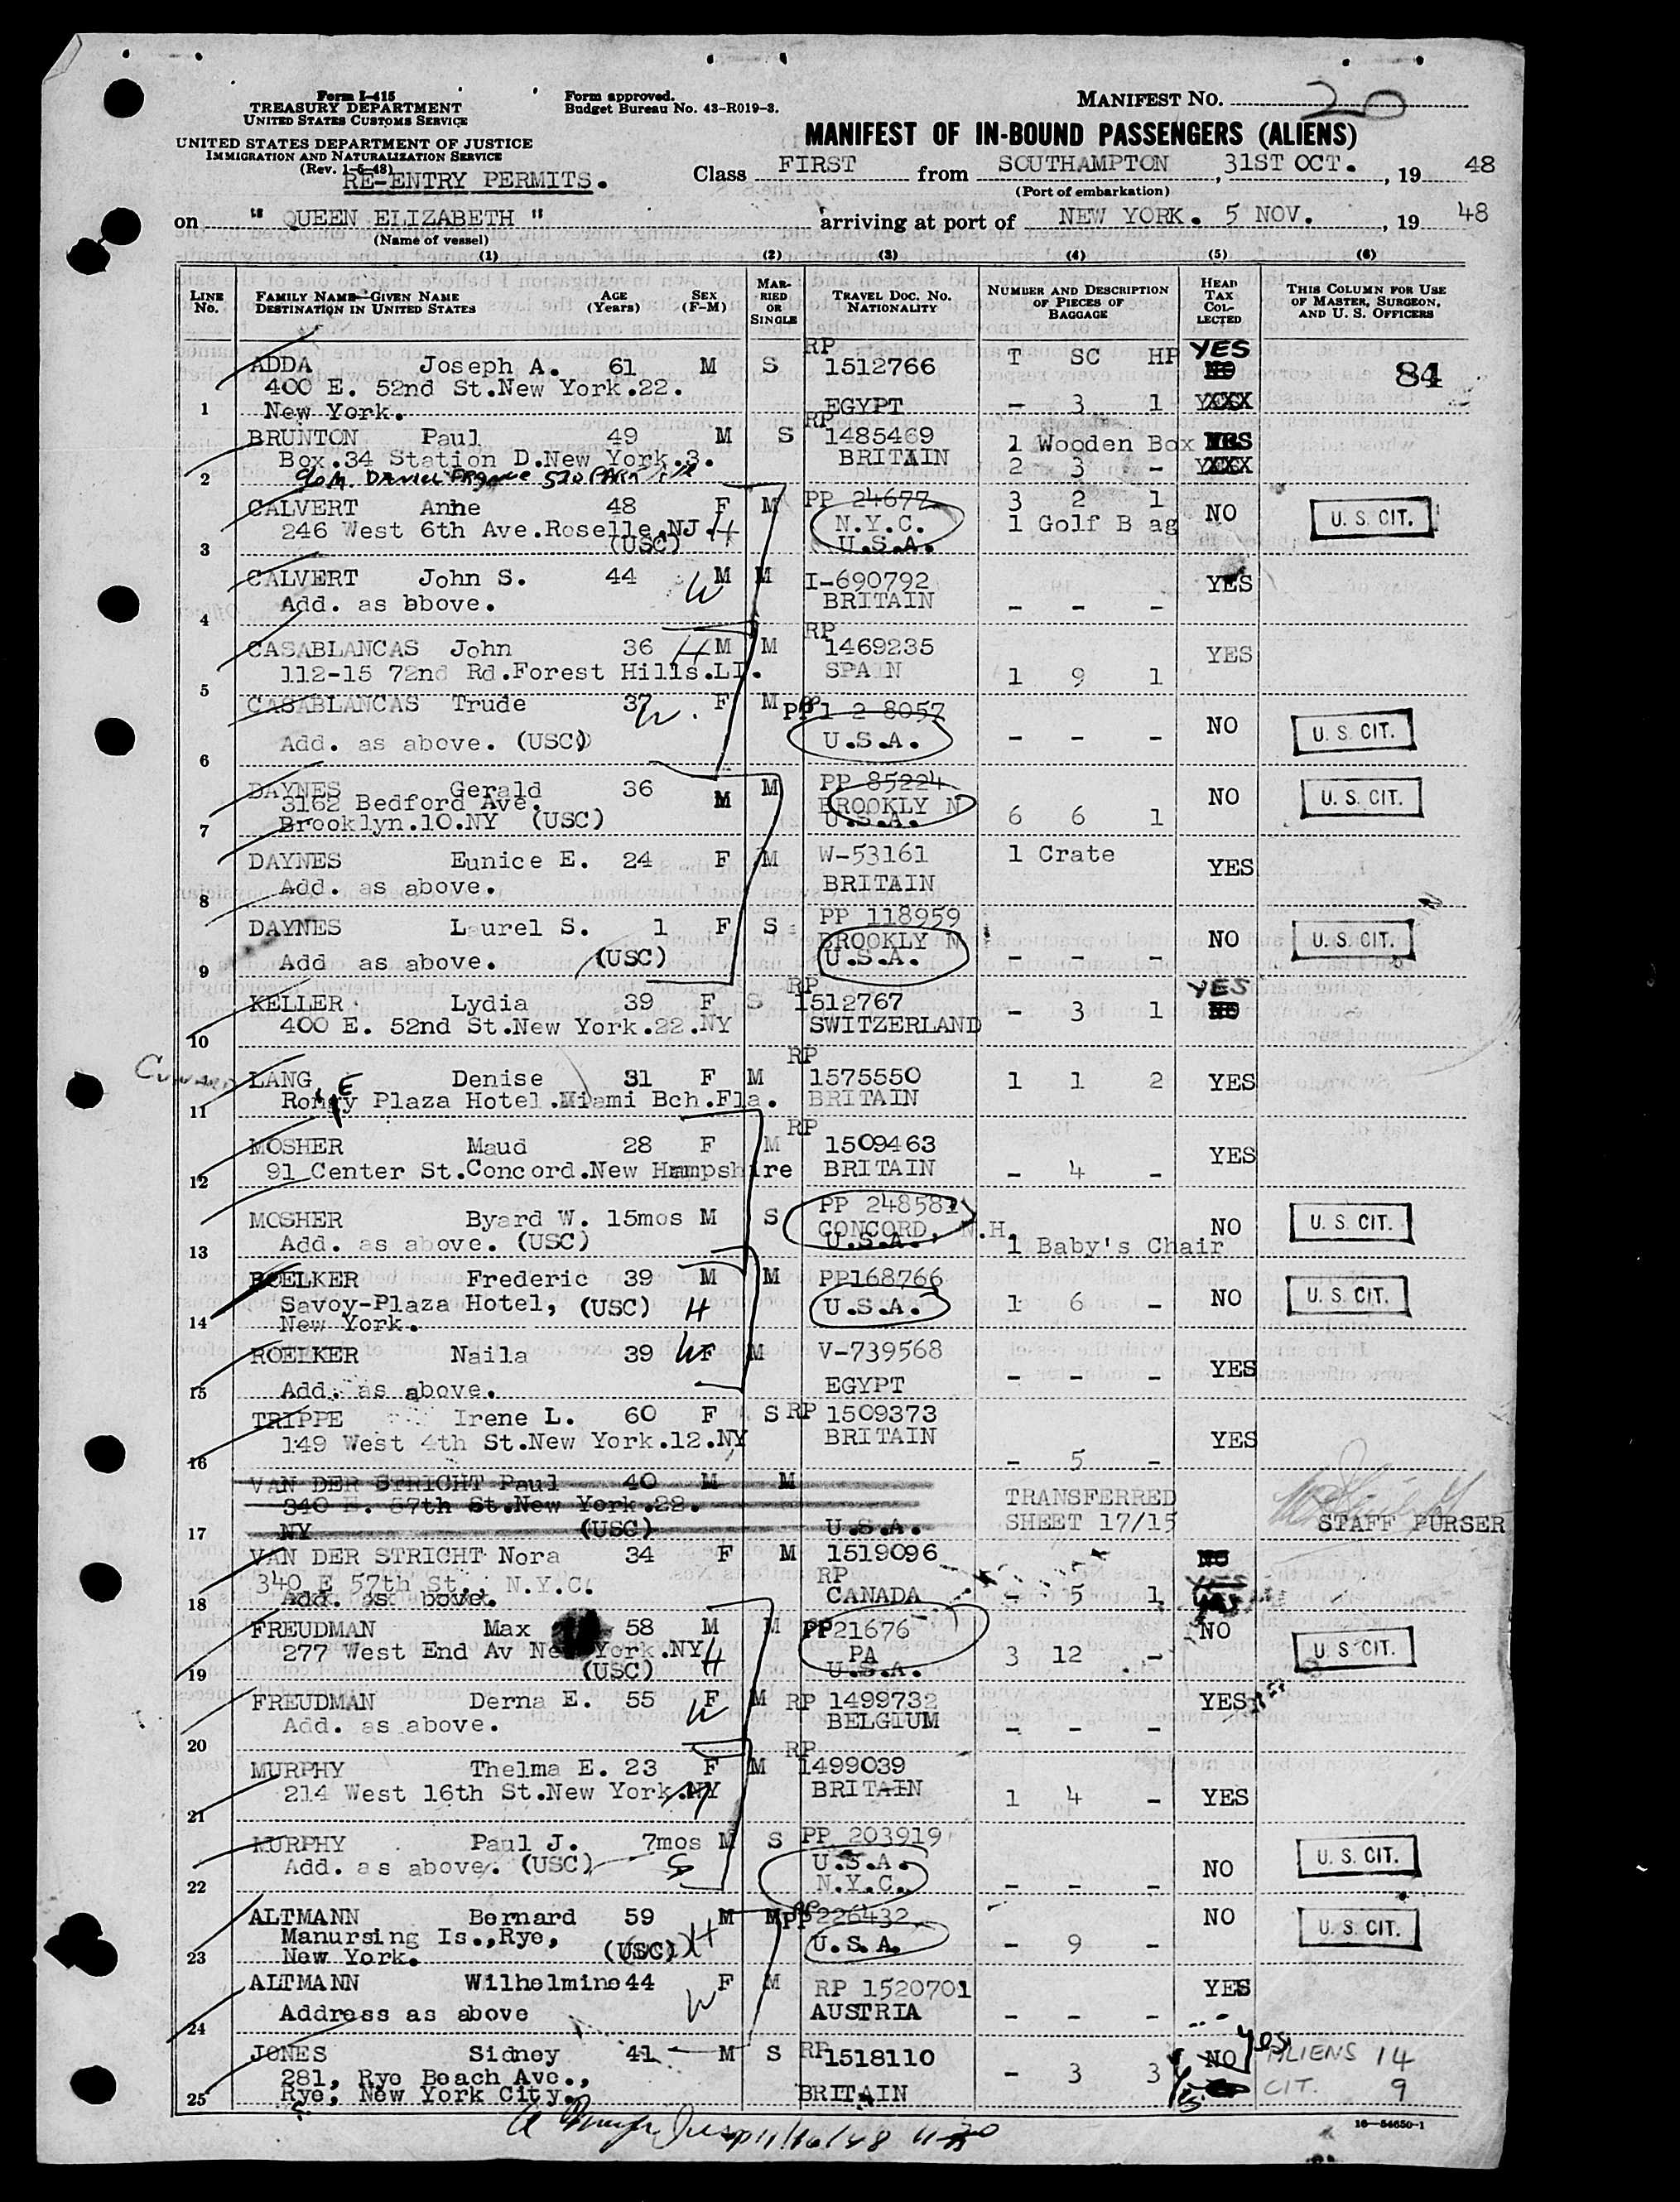 Form I-415
TREASURY DEPARTMENT
UNITED STATES CUSTOMS SERVICE
UNITED STATES DEPARTMENT OF JUSTICE
IMMIGRATION AND NATURALIZATION SERVICE
(Rev. 1-5-48)
RE-ENTRY PERMITS.
Form approved.
Budget Bureau No. 43-R019-3.
MANIFEST NO. 20
MANIFEST OF IN-BOUND PASSENGERS (ALIENS)
Class FIRST from SOUTHAMPTON, 31ST OCT., 19 48
(Port of embarkation)
on " QUEEN ELIZABETH " arriving at port of NEW YORK. 5 NOV., 19 48
(Name of vessel)
(1) (2) (3) (4) (5) (6)
LINE NO. FAMILY NAME—GIVEN NAME DESTINATION IN UNITED STATES AGE (Years) SEX (F-M) MARRIED OR SINGLE TRAVEL DOC. NO. NATIONALITY NUMBER AND DESCRIPTION OF PIECES OF BAGGAGE HEAD TAX COLLECTED THIS COLUMN FOR USE OF MASTER, SURGEON, AND U. S. OFFICERS
RP T SC HP YES
ADDA Joseph A. 61 M S 1512766 NO 84
400 E. 52nd St.New York.22.
1 New York. EGYPT - 3 1 YES XXX
RP
BRUNTON Paul 49 M S 1485469 1 Wooden Box YES
Box.34 Station D.New York.3. BRITAIN 2 3 - YES XXX
2
CALVERT Anne 48 F M PP 24677 3 2 1 NO U. S. CIT.
246 West 6th Ave.Roselle.NJ. H N.Y.C. 1 Golf B ag
3 (USC) U.S.A.
CALVERT John S. 44 W M M I-690792 YES
4 Add. as bbove. BRITAIN - - -
RP
CASABLANCAS John 36 H M M 1469235 YES
5 112-15 72nd Rd.Forest Hills.LI. SPAIN 1 9 1
CASABLANCAS Trude 37 W. F M PP 1 2 8057 NO U. S. CIT.
6 Add. as above. (USC) U.S.A. - - -
DAYNES Gerald 36 M M PP 85224 NO U. S. CIT.
3162 Bedford Ave. BROOKLY N
7 Brooklyn.10.NY (USC) U.S.A. 6 6 1
DAYNES Eunice E. 24 F M W-53161 1 Crate YES
8 Add. as above. BRITAIN
DAYNES Laurel S. 1 F S PP 118959 NO U. S. CIT.
BROOKLY N
9 Add as above. (USC) U.S.A. - - -
RP YES
KELLER Lydia 39 F S 1512767 - 3 1 NO
10 400 E. 52nd St.New York.22.NY SWITZERLAND
RP
LANG Denise 31 F M 1575550 1 1 2 YES
11 Roney Plaza Hotel.Miami Bch.Fla. BRITAIN
RP
MOSHER Maud 28 F M 1509463 YES
12 91 Center St.Concord.New Hampshire BRITAIN - 4 -
MOSHER Byard W. 15mos M S PP 248581 NO U. S. CIT.
CONCORD, N.H.
13 Add. as above. (USC) U.S.A. 1 Baby's Chair
ROELKER Frederic 39 M M PP168766 NO U. S. CIT.
Savoy-Plaza Hotel, (USC) H U.S.A. 1 6 -
14 New York.
ROELKER Naila 39 W F M V-739568 YES
15 Add. as above. EGYPT - - -
TRIPPE Irene L. 60 F S RP 1509373 YES
16 149 West 4th St.New York.12.NY BRITAIN - 5 -
VAN DER STRICHT Paul 40 M M
340 E. 57th St.New York.22. TRANSFERRED
17 NY (USC) U.S.A. SHEET 17/15 STAFF PURSER
VAN DER STRICHT Nora 34 F M 1519096 NO
340 E 57th St., N.Y.C. RP YES
18 Add. as bove. CANADA - 5 1
FREUDMAN Max 58 M M PP21676 NO U. S. CIT.
277 West End Av New York.NY H PA 3 12 -
19 (USC) U.S.A.
FREUDMAN Derna E. 55 F M RP 1499732 YES
20 Add. as above. W BELGIUM - - -
RP
MURPHY Thelma E. 23 F M 1499039
21 214 West 16th St.New York.NY BRITAIN 1 4 - YES
MURPHY Paul J. 7mos M S PP 203919 U. S. CIT.
Add. as above. (USC) S U.S.A. NO
22 N.Y.C. - - -
ALTMANN Bernard 59 M M PP226432 NO U. S. CIT.
Manursing Is.,Rye, (USC) H U.S.A. - 9 -
23 New York.
ALTMANN Wilhelmine 44 F M RP 1520701 YES
24 Address as above W AUSTRIA - - -
JONES Sidney 41 M S RP 1518110 - 3 3 NO Yes ALIENS 14
281, Rye Beach Ave., Yes CIT. 9
25 Rye, New York City. BRITAIN
16—54650-1